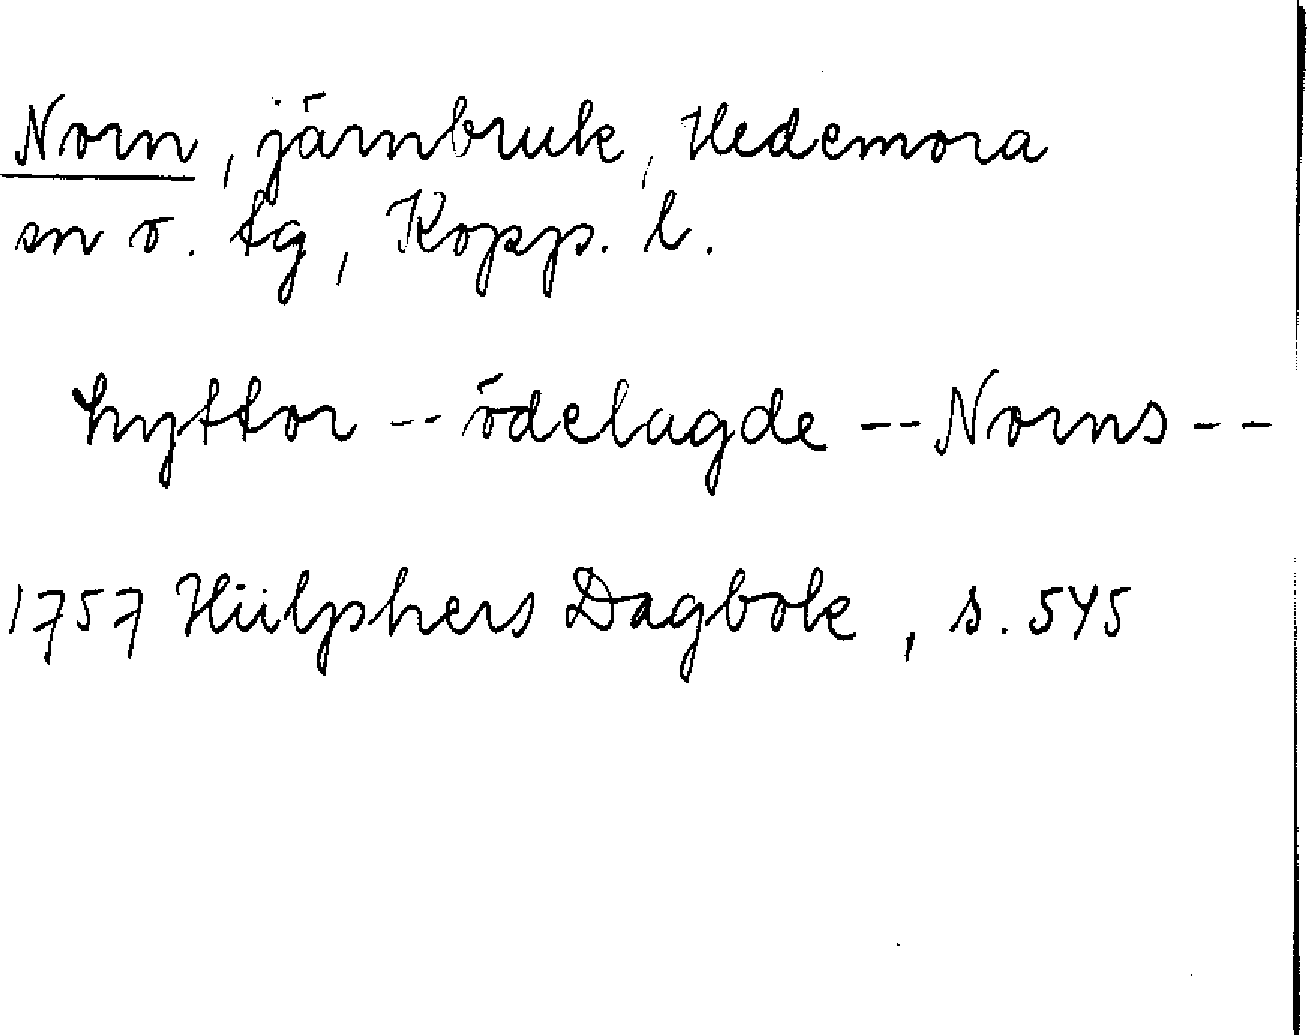 Norn, järnbruk, Hedemora
sn o. tg, Kopp. l.
hyttor -- ödelagde -- Norns --
1757 Hülphers Dagbok, s. 545